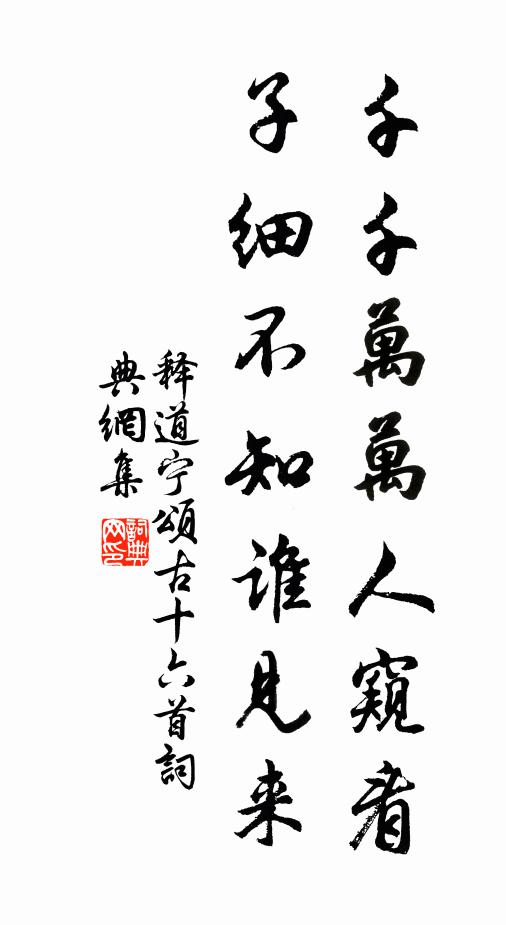 千千萬萬人窺看
子细不知谁見来
释道宁頌古十六首詞
典網集
詞典网印